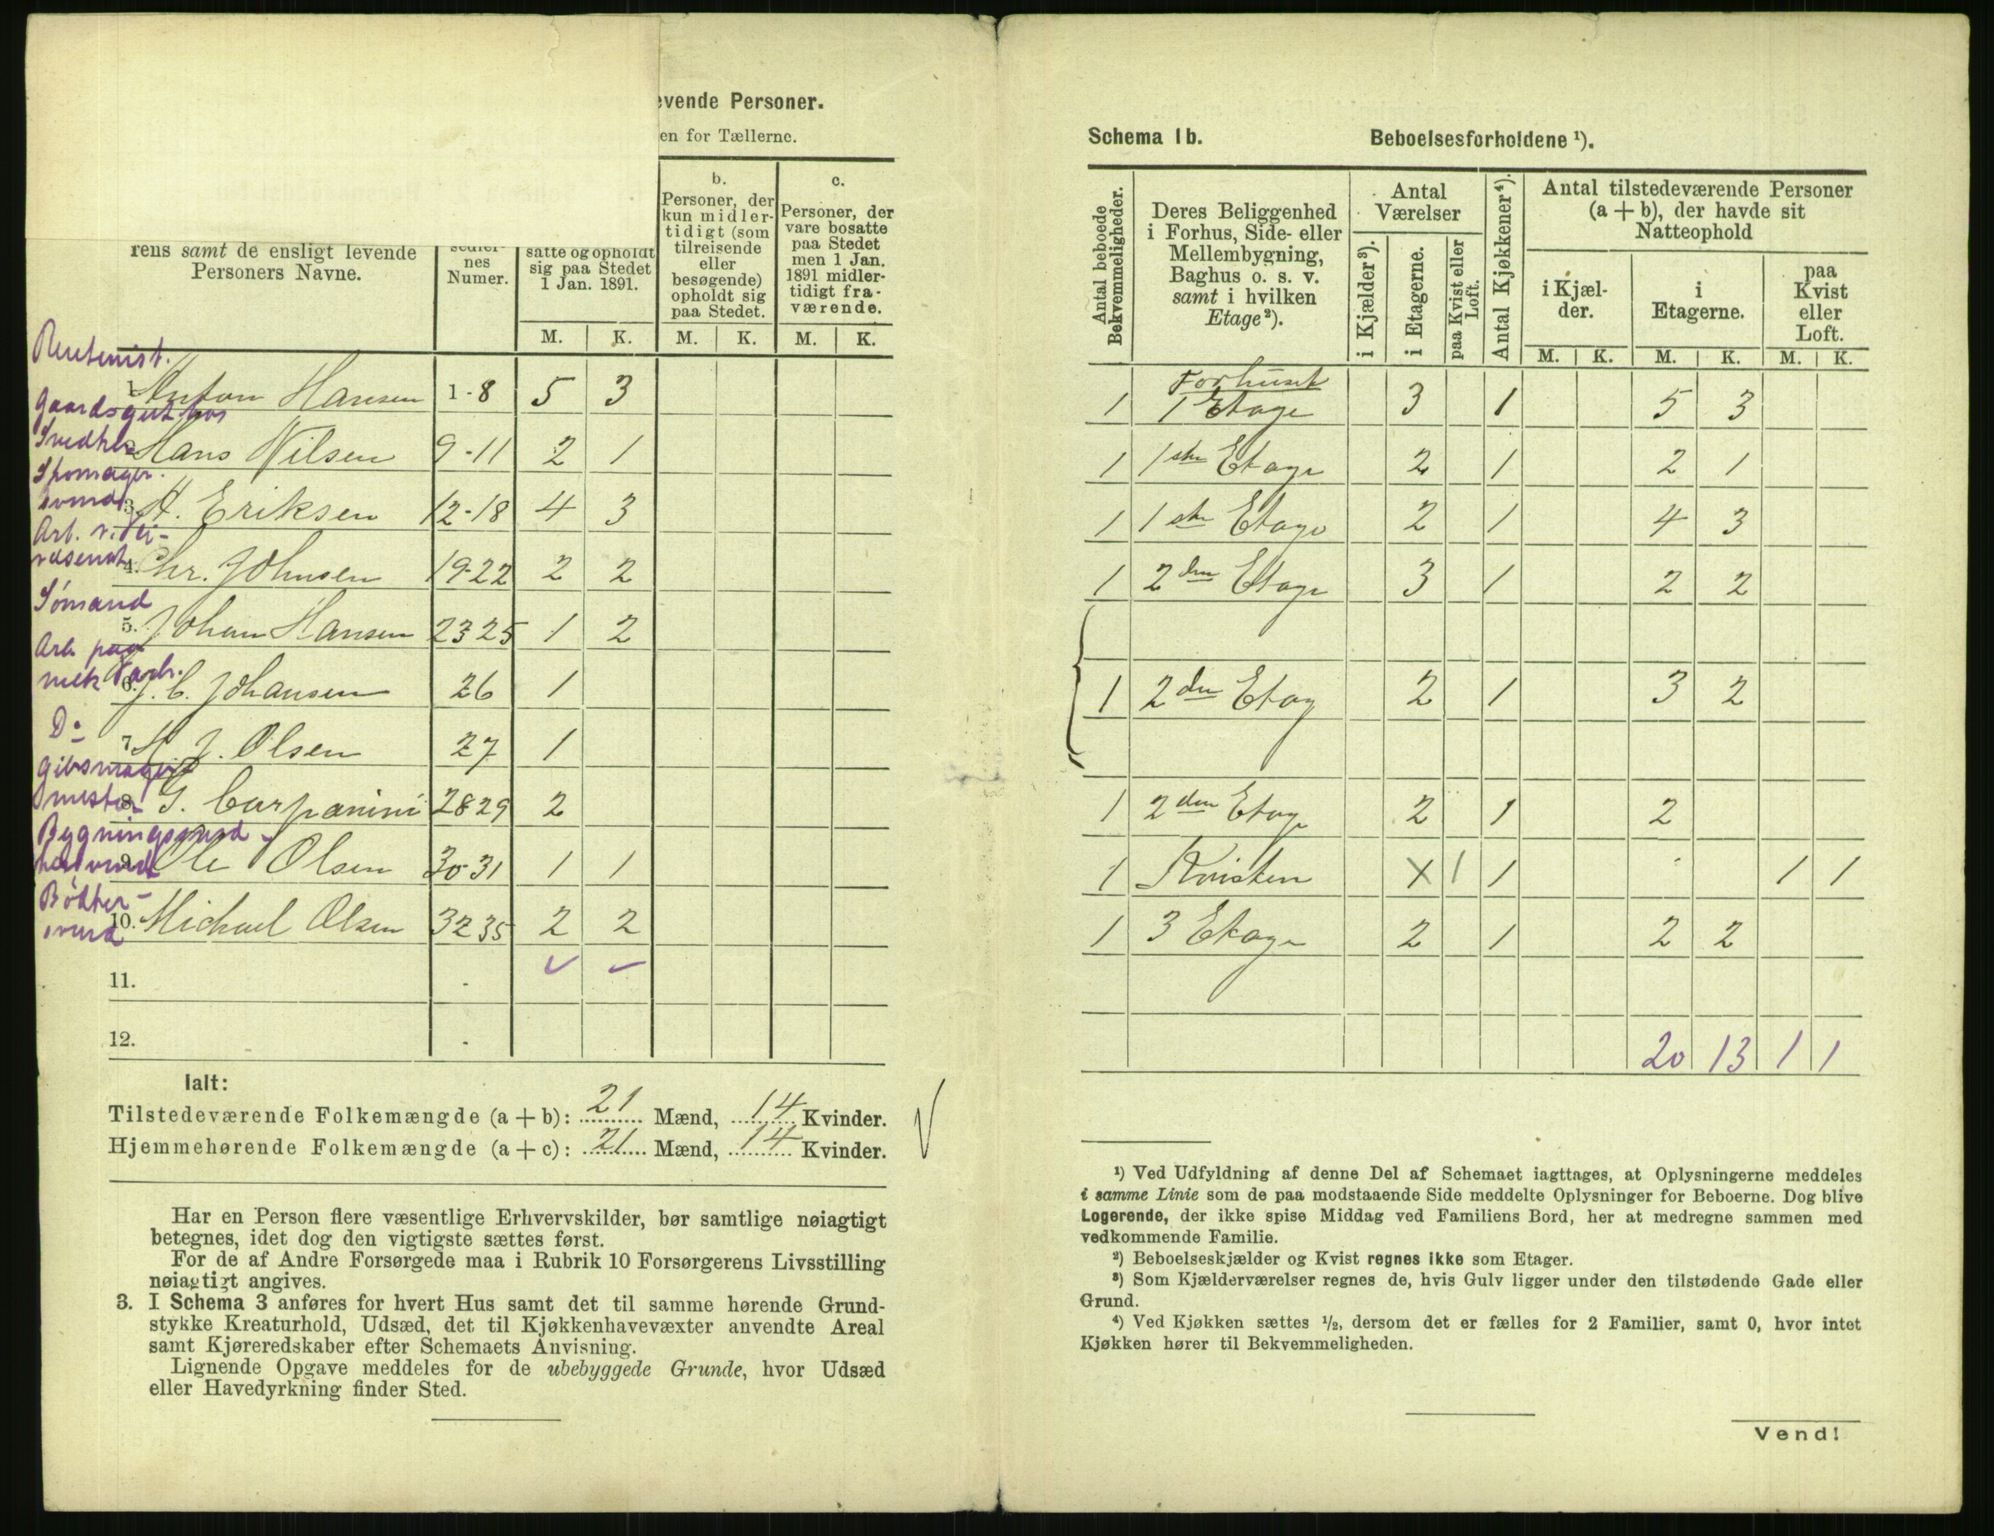 evende Personer.
en for Tællerne.
rens samt de ensligt levende
Personers Navne.
sedler-
nes
Numer.
satte og opholdt
sig paa Stedet
1 Jan. 1891.
b.
Personer, der
kun midler-
tidigt (som
tilreisende
eller
besøgende)
opholdt sig
paa Stedet.
c.
Personer, der
vare bosatte
paa Stedet
men 1 Jan.
1891 midler-
tidigt fra-
værende.
M. K. M. K. M. K.
Rentenist.
1. Anton Hansen 1-8 5 3
Gaardsgut hos
2. Hans Nilsen 9-11 2 1
3. H. Eriksen 12-18 4 3
4. Chr. Johnsen 19-22 2 2
Sømand
5. Johan Hansen 23 25 1 2
Arb. paa
mek Værk.
6. J. C. Johansen 26 1
Do
7. H. J. Olsen 27 1
Gibsmager
mester
8. G. Carpanini 28 29 2
9. Ole Olsen 30-31 1 1
Bødker-
svend
10. Michael Olsen 32 35 2 2
11.
12.
Ialt:
Tilstedeværende Folkemængde (a + b): 21 Mænd, 14 Kvinder.
Hjemmehørende Folkemængde (a + c): 21 Mænd, 14 Kvinder.
Har en Person flere væsentlige Erhvervskilder, bør samtlige nøiagtigt
betegnes, idet dog den vigtigste sættes først.
For de af Andre Forsørgede maa i Rubrik 10 Forsørgerens Livsstilling
nøiagtigt angives.
3. I Schema 3 anføres for hvert Hus samt det til samme hørende Grund-
stykke Kreaturhold, Udsæd, det til Kjøkkenhavevæxter anvendte Areal
samt Kjøreredskaber efter Schemaets Anvisning.
Lignende Opgave meddeles for de ubebyggede Grunde, hvor Udsæd
eller Havedyrkning finder Sted.
Schema 1b. Beboelsesforholdene ¹).
Antal beboede
Bekvemmeligheder.
Deres Beliggenhed
i Forhus, Side- eller
Mellembygning,
Baghus o. s. v.
samt i hvilken
Etage²).
Antal
Værelser
i Kjælder³).
i Etagerne.
paa Kvist eller
Loft.
Antal Kjøkkener⁴).
Antal tilstedeværende Personer
(a + b), der havde sit
Natteophold
i Kjæl-
der.
i
Etagerne.
paa
Kvist
eller
Loft.
M. K. M. K. M. K.
Forhuset
1 1 Etage 3 1 5 3
1 1ste Etage 2 1 2 1
1 1ste Etage 2 1 4 3
1 2den Etage 3 1 2 2
1 2den Etag 2 1 3 2
1 2den Etage 2 1 2
1 Kvisten X 1 1 1 1
1 3 Etage 2 1 2 2
20 13 1 1
¹) Ved Udfyldning af denne Del af Schemaet iagttages, at Oplysningerne meddeles
i samme Linie som de paa modstaaende Side meddelte Oplysninger for Beboerne. Dog blive
Logerende, der ikke spise Middag ved Familiens Bord, her at medregne sammen med
vedkommende Familie.
²) Beboelseskjælder og Kvist regnes ikke som Etager.
³) Som Kjælderværelser regnes de, hvis Gulv ligger under den tilstødende Gade eller
Grund.
⁴) Ved Kjøkken sættes ½, dersom det er fælles for 2 Familier, samt 0, hvor intet
Kjøkken hører til Bekvemmeligheden.
Vend!